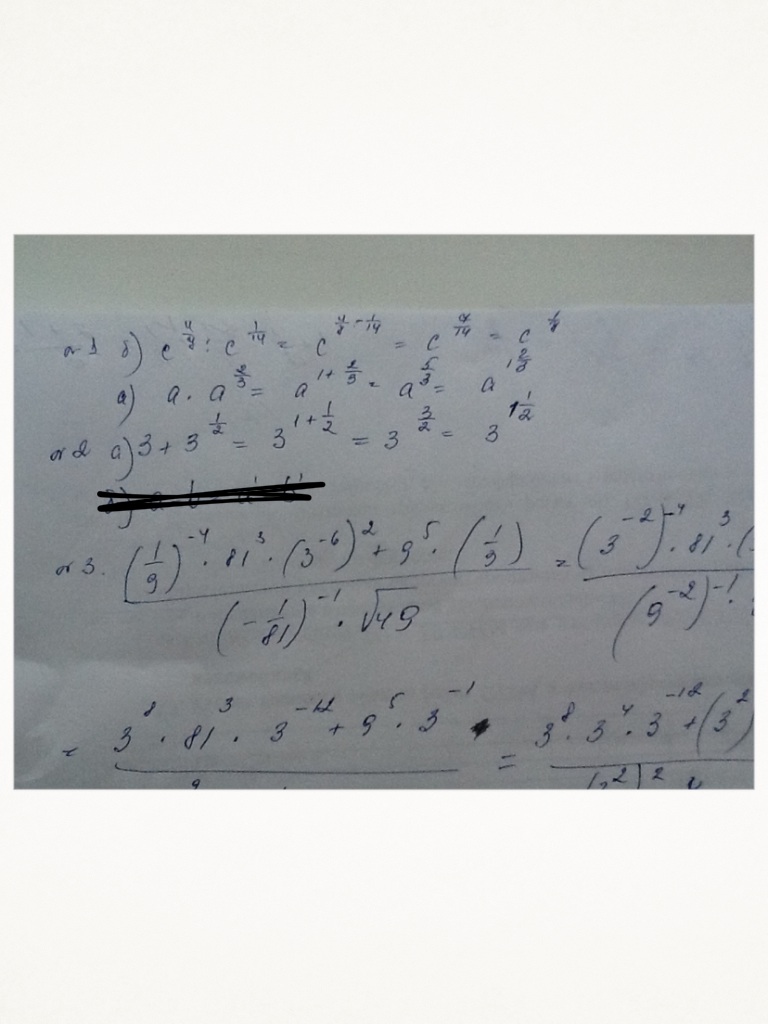 №1 б) c^{4/7} : c^{1/14} = c^{4/7 - 1/14} = c^{7/14} = c
а) a · a^{2/3} = a^{1 + 2/3} = a^{5/3} = a^{1 2/3}
№2 а) 3 + 3^{1/2} = 3^{1 + 1/2} = 3^{3/2} = 3^{1 1/2}
№3. ((1/9)^{-4} · 81^3 · (3^{-6})^2 + 9^5 · (1/9)) / ((-1/81)^{-1} · √49) = ((3^{-2})^{-4} · 81^3 · ( / ((9^{-2})^{-1} ·
= 3^8 · 81^3 · 3^{-12} + 9^5 · 3^{-1} = 3^8 · 3^4 · 3^{-12} + (3^2)